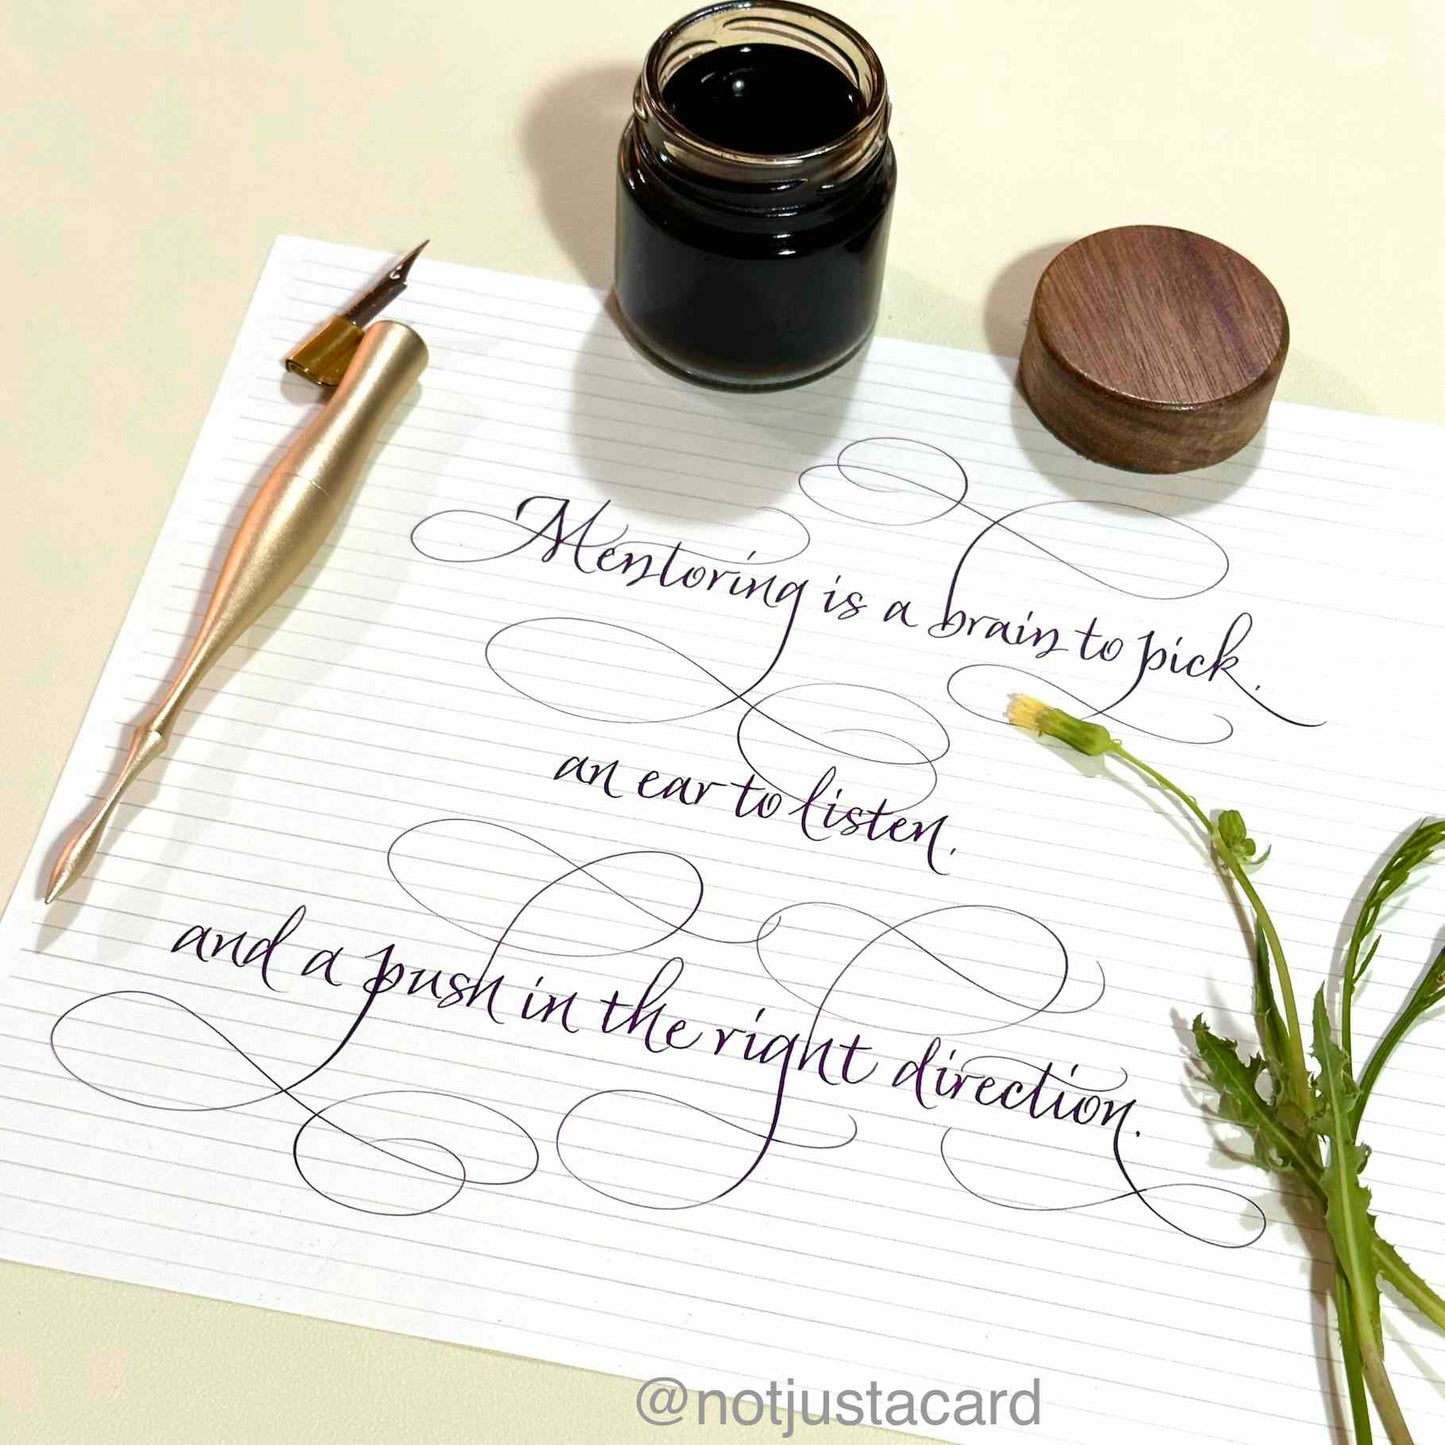 Mentoring is a brain to pick,
an ear to listen,
and a push in the right direction.
@notjustacard